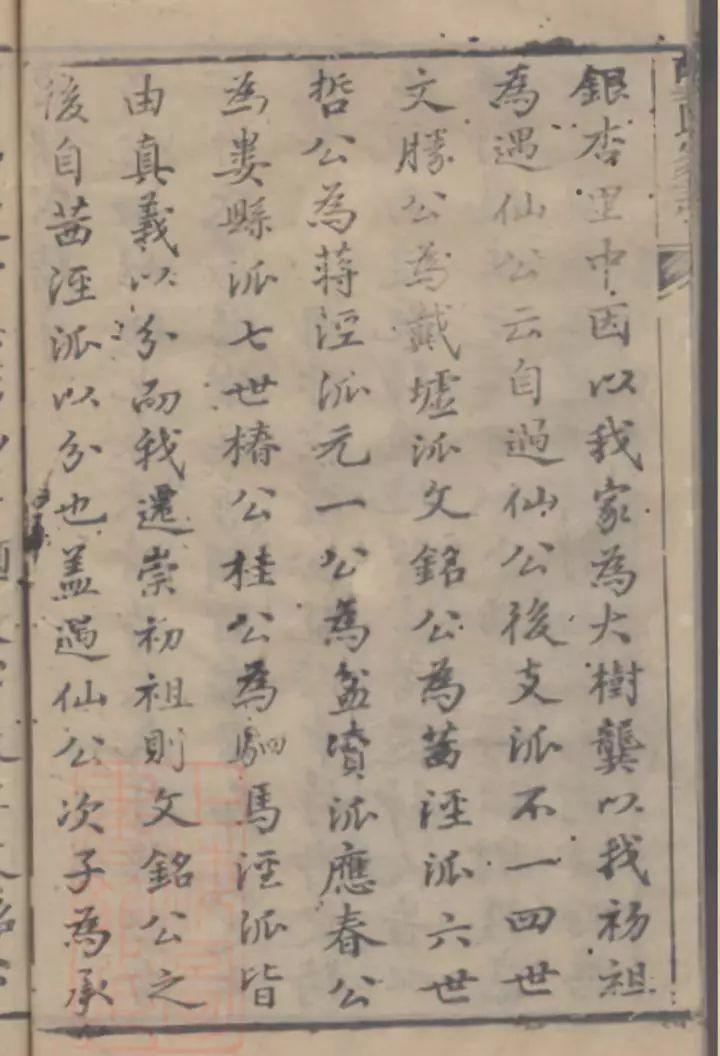 銀杏里中因以我家為大樹龔以我初祖
為遇仙公云自過仙公後支派不一四世
文勝公為戴墟派文銘公為茜涇派六世
哲公為蔣涇派元一公為盆瀆派應春公
為婁縣派七世椿公桂公為駟馬涇派皆
由真義以分而我還崇初祖則文銘公之
後自茜涇派以分也盖遇仙公次子為承